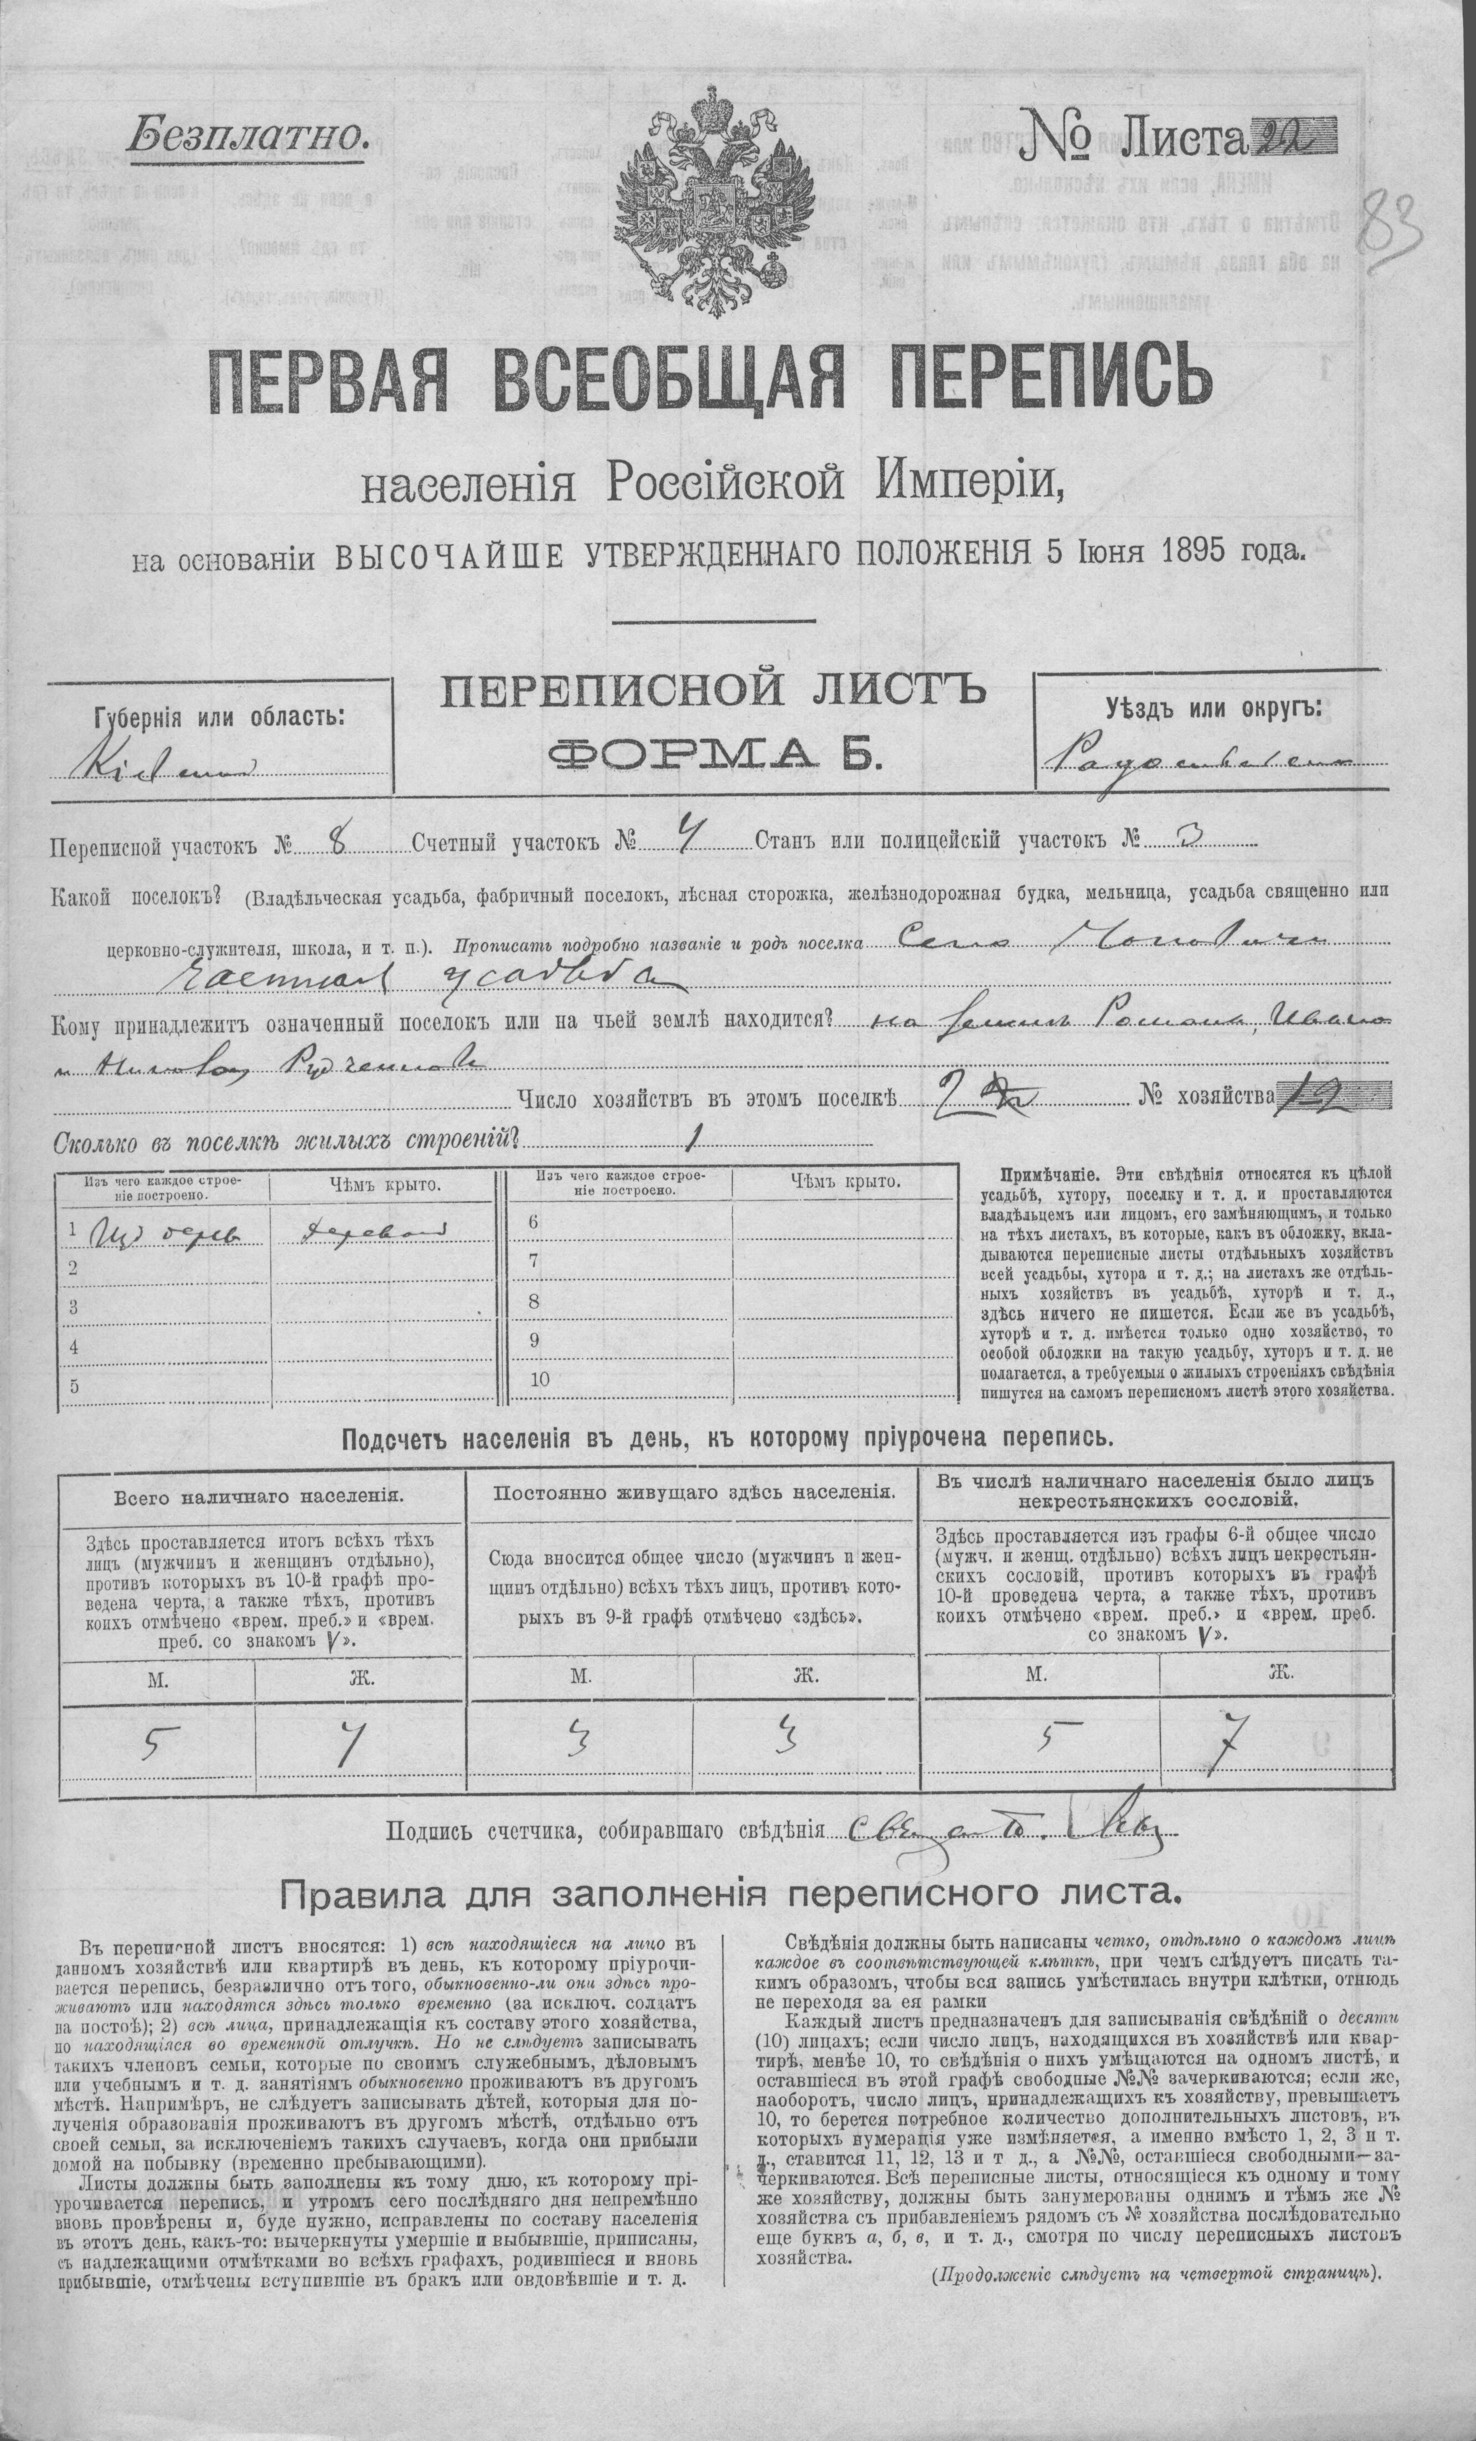 Безплатно.
№ Листа 22
83
ПЕРВАЯ ВСЕОБЩАЯ ПЕРЕПИСЬ
населенія Россійской Имперіи,
на основаніи ВЫСОЧАЙШЕ УТВЕРЖДЕННАГО ПОЛОЖЕНІЯ 5 Іюня 1895 года.
ПЕРЕПИСНОЙ ЛИСТЪ
ФОРМА Б.
Губернія или область:
Уѣздъ или округъ:
Переписной участокъ № 8 Счетный участокъ № 4 Станъ или полицейскій участокъ № 3
Какой поселокъ? (Владѣльческая усадьба, фабричный поселокъ, лѣсная сторожка, желѣзнодорожная будка, мельница, усадьба священно или
церковно-служителя, школа, и т. п.). Прописать подробно названіе и родъ поселка Село
усадьба
Кому принадлежитъ означенный поселокъ или на чьей землѣ находится? на
Число хозяйствъ въ этомъ поселкѣ 2 № хозяйства 12
Сколько въ поселкѣ жилыхъ строеній? 1
Изъ чего каждое строе-
ніе построено.
Чѣмъ крыто.
Изъ чего каждое строе-
ніе построено.
Чѣмъ крыто.
1 Изъ дерев
6
2
7
3
8
4
9
5
10
Примѣчаніе. Эти свѣдѣнія относятся къ цѣлой
усадьбѣ, хутору, поселку и т. д. и проставляются
владѣльцемъ или лицомъ, его замѣняющимъ, и только
на тѣхъ листахъ, въ которые, какъ въ обложку, вкла-
дываются переписные листы отдѣльныхъ хозяйствъ
всей усадьбы, хутора и т. д.; на листахъ же отдѣль-
ныхъ хозяйствъ въ усадьбѣ, хуторѣ и т. д.,
здѣсь ничего не пишется. Если же въ усадьбѣ,
хуторѣ и т. д. имѣется только одно хозяйство, то
особой обложки на такую усадьбу, хуторъ и т. д. не
полагается, а требуемыя о жилыхъ строеніяхъ свѣдѣнія
пишутся на самомъ переписномъ листѣ этого хозяйства.
Подсчетъ населенія въ день, къ которому пріурочена перепись.
Всего наличнаго населенія.
Постоянно живущаго здѣсь населенія.
Въ числѣ наличнаго населенія было лицъ
некрестьянскихъ сословій.
Здѣсь проставляется итогъ всѣхъ тѣхъ
лицъ (мужчинъ и женщинъ отдѣльно),
противъ которыхъ въ 10-й графѣ про-
ведена черта, а также тѣхъ, противъ
коихъ отмѣчено «врем. преб.» и «врем.
преб. со знакомъ V».
Сюда вносится общее число (мужчинъ и жен-
щинъ отдѣльно) всѣхъ тѣхъ лицъ, противъ кото-
рыхъ въ 9-й графѣ отмѣчено «здѣсь».
Здѣсь проставляется изъ графы 6-й общее число
(мужч. и женщ. отдѣльно) всѣхъ лицъ некрестьян-
скихъ сословій, противъ которыхъ въ графѣ
10-й проведена черта, а также тѣхъ, противъ
коихъ отмѣчено «врем. преб.» и «врем. преб.
со знакомъ V».
М. Ж. М. Ж. М. Ж.
5 7 3 3 5 7
Подпись счетчика, собиравшаго свѣдѣнія
Правила для заполненія переписного листа.
Въ переписной листъ вносятся: 1) всѣ находящіеся на лицо въ
данномъ хозяйствѣ или квартирѣ въ день, къ которому пріурочи-
вается перепись, безразлично отъ того, обыкновенно-ли они здѣсь про-
живаютъ или находятся здѣсь только временно (за исключ. солдатъ
на постоѣ); 2) всѣ лица, принадлежащія къ составу этого хозяйства,
но находящіяся во временной отлучкѣ. Но не слѣдуетъ записывать
такихъ членовъ семьи, которые по своимъ служебнымъ, дѣловымъ
или учебнымъ и т. д. занятіямъ обыкновенно проживаютъ въ другомъ
мѣстѣ. Напримѣръ, не слѣдуетъ записывать дѣтей, которыя для по-
лученія образованія проживаютъ въ другомъ мѣстѣ, отдѣльно отъ
своей семьи, за исключеніемъ такихъ случаевъ, когда они прибыли
домой на побывку (временно пребывающими).
Листы должны быть заполнены къ тому дню, къ которому прі-
урочивается перепись, и утромъ сего послѣдняго дня непремѣнно
вновь провѣрены и, буде нужно, исправлены по составу населенія
въ этотъ день, какъ-то: вычеркнуты умершіе и выбывшіе, приписаны,
съ надлежащими отмѣтками во всѣхъ графахъ, родившіеся и вновь
прибывшіе, отмѣчены вступившіе въ бракъ или овдовѣвшіе и т. д.
Свѣдѣнія должны быть написаны четко, отдѣльно о каждомъ лицѣ
каждое въ соотвѣтствующей клѣткѣ, при чемъ слѣдуетъ писать та-
кимъ образомъ, чтобы вся запись умѣстилась внутри клѣтки, отнюдь
не переходя за ея рамки
Каждый листъ предназначенъ для записыванія свѣдѣній о десяти
(10) лицахъ; если число лицъ, находящихся въ хозяйствѣ или квар-
тирѣ, менѣе 10, то свѣдѣнія о нихъ умѣщаются на одномъ листѣ, и
оставшіеся въ этой графѣ свободные №№ зачеркиваются; если же,
наоборотъ, число лицъ, принадлежащихъ къ хозяйству, превышаетъ
10, то берется потребное количество дополнительныхъ листовъ, въ
которыхъ нумерація уже измѣняется, а именно вмѣсто 1, 2, 3 и т.
д., ставится 11, 12, 13 и т д., а №№, оставшіеся свободными—за-
черкиваются. Всѣ переписные листы, относящіеся къ одному и тому
же хозяйству, должны быть занумерованы однимъ и тѣмъ же №
хозяйства съ прибавленіемъ рядомъ съ № хозяйства послѣдовательно
еще буквъ а, б, в, и т. д., смотря по числу переписныхъ листовъ
хозяйства.
(Продолженіе слѣдуетъ на четвертой страницѣ).